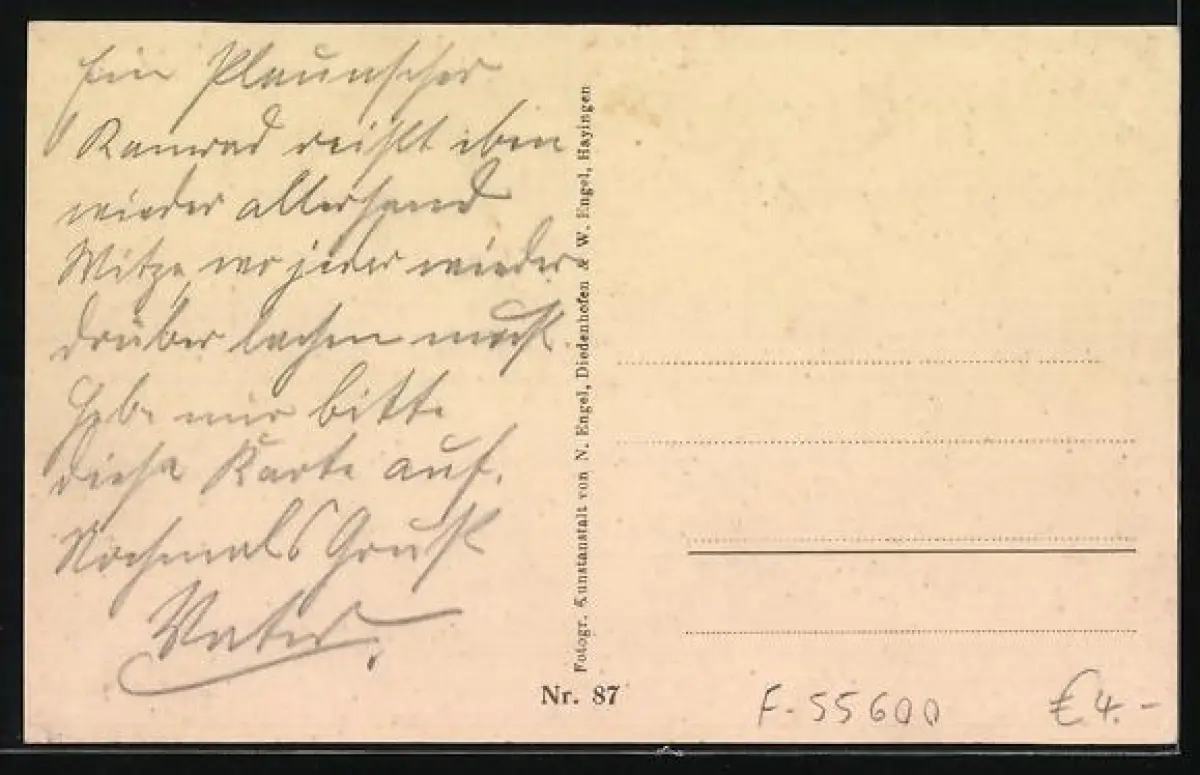 Ein Plaunscher
Kamrad reißt eben
wieder allerhand
Witze, wo jeder wieder
drüber lachen muß.
Hebe mir bitte
diese Karte auf.
Nochmals Gruß
Vater.
Fotogr. Kunstanstalt von N. Engel, Diedenhofen & W. Engel, Hayingen
Nr. 87
F-55600
€ 4.-